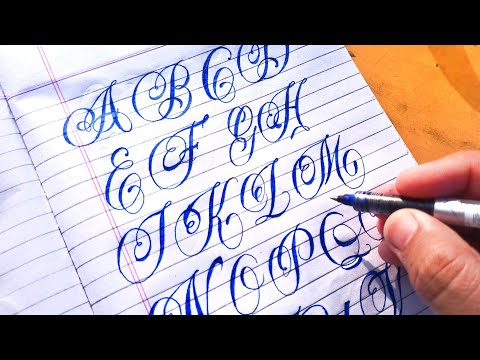 A B C D
E F G H
I K L M
N O P Q